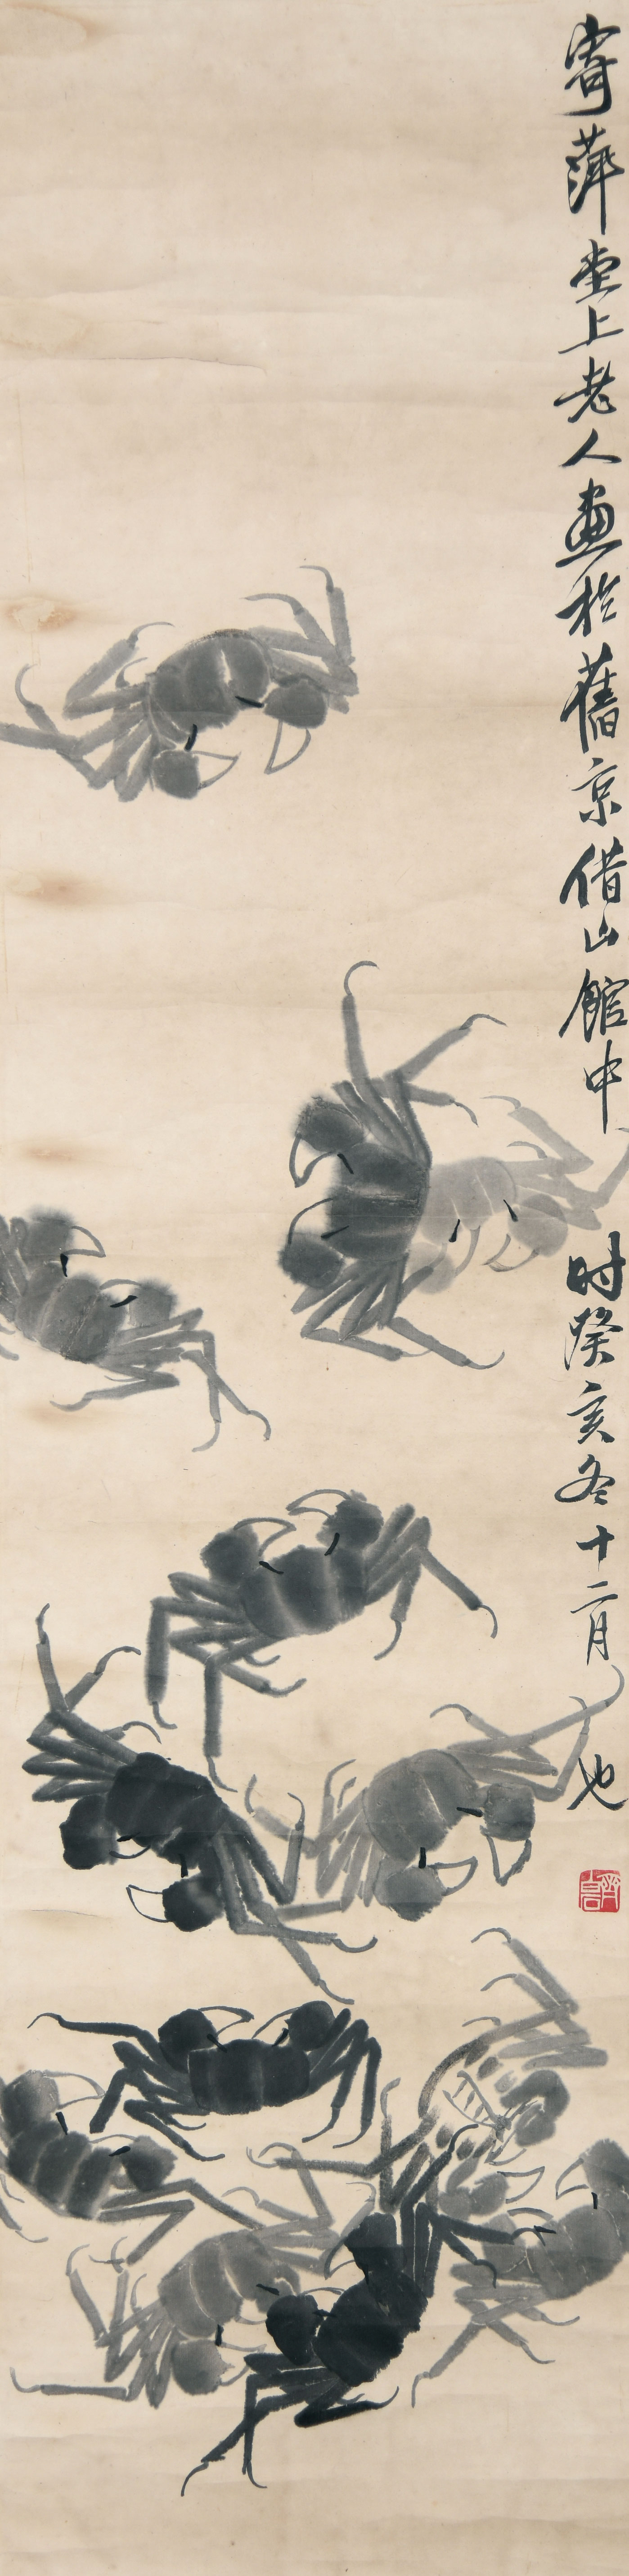 寄萍堂上老人畫於舊京借山館中 时癸亥冬十二月也